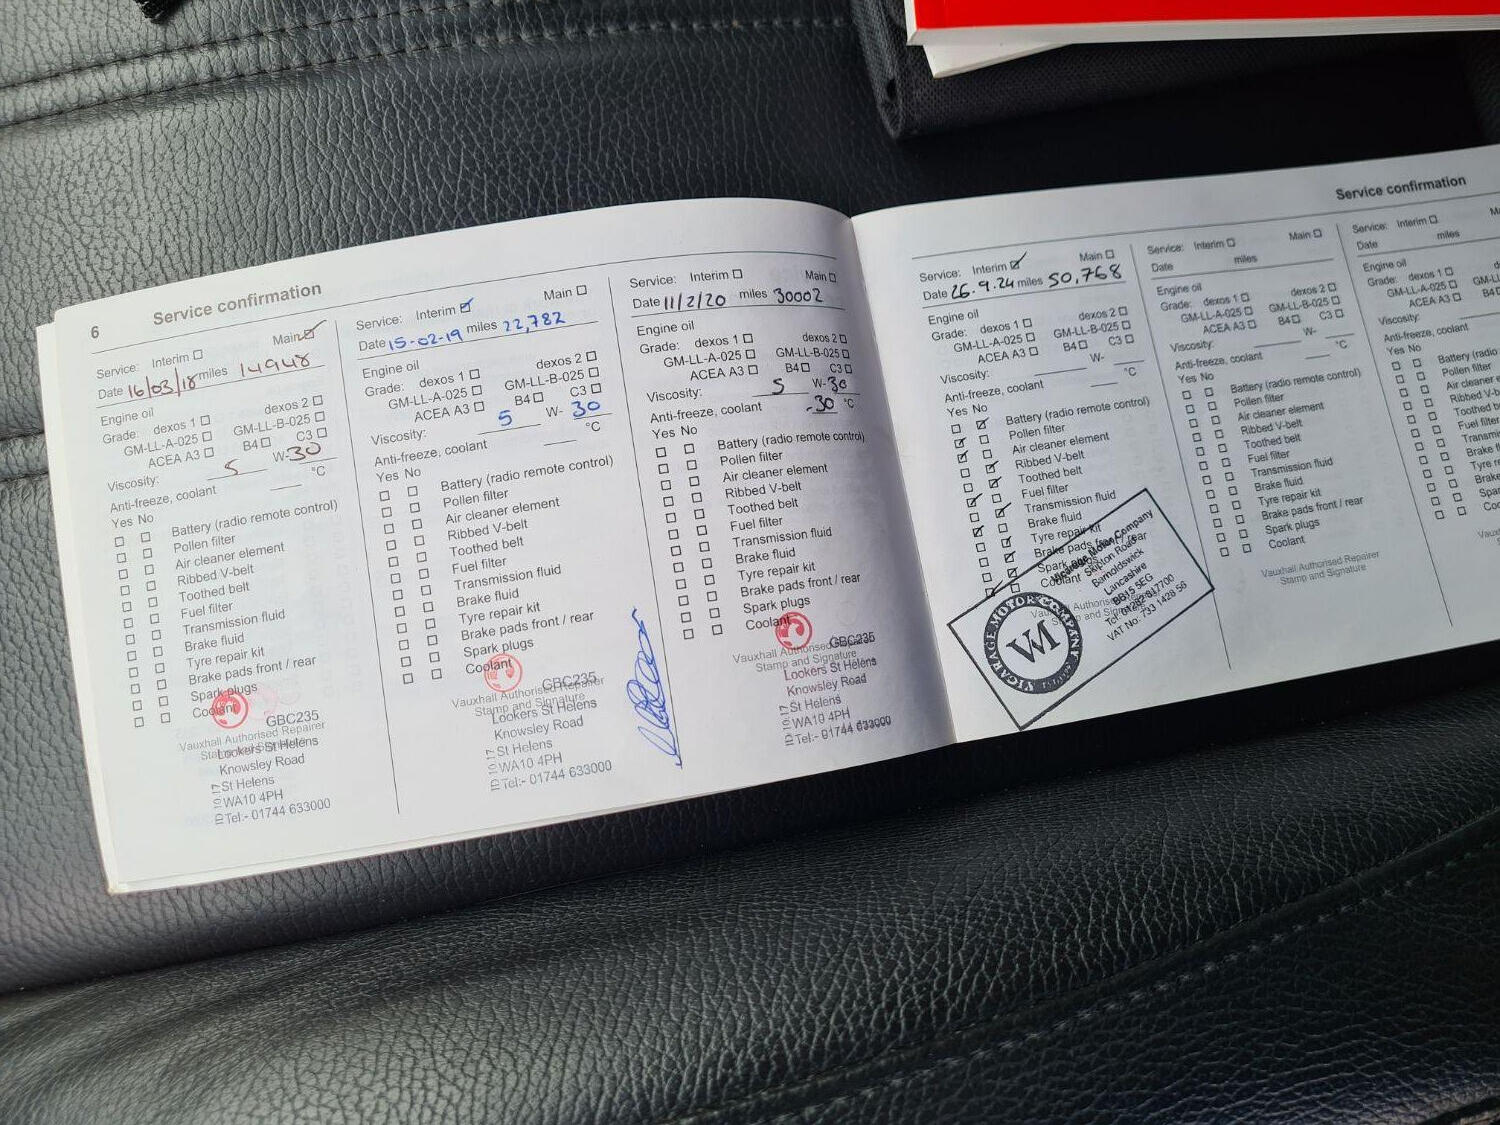 6 Service confirmation
Service: Interim Main
Date 16/03/18 miles 14948
Engine oil
Grade: dexos 1 dexos 2
GM-LL-A-025 GM-LL-B-025
ACEA A3 B4 C3
Viscosity: 5 W-30
Anti-freeze, coolant °C
Yes No
Battery (radio remote control)
Pollen filter
Air cleaner element
Ribbed V-belt
Toothed belt
Fuel filter
Transmission fluid
Brake fluid
Tyre repair kit
Brake pads front / rear
Spark plugs
Coolant
GBC235
Vauxhall Authorised Repairer
Stamp and Signature
Lookers St Helens
Knowsley Road
St Helens
WA10 4PH
Tel:- 01744 633000
Service: Interim Main
Date 15-02-19 miles 22,782
Engine oil
Grade: dexos 1 dexos 2
GM-LL-A-025 GM-LL-B-025
ACEA A3 B4 C3
Viscosity: 5 W-30
Anti-freeze, coolant °C
Yes No
Battery (radio remote control)
Pollen filter
Air cleaner element
Ribbed V-belt
Toothed belt
Fuel filter
Transmission fluid
Brake fluid
Tyre repair kit
Brake pads front / rear
Spark plugs
Coolant
GBC235
Vauxhall Authorised Repairer
Stamp and Signature
Lookers St Helens
Knowsley Road
St Helens
WA10 4PH
Tel:- 01744 633000
Service: Interim Main
Date 11/2/20 miles 30002
Engine oil
Grade: dexos 1 dexos 2
GM-LL-A-025 GM-LL-B-025
ACEA A3 B4 C3
Viscosity: 5 W-30
Anti-freeze, coolant -30 °C
Yes No
Battery (radio remote control)
Pollen filter
Air cleaner element
Ribbed V-belt
Toothed belt
Fuel filter
Transmission fluid
Brake fluid
Tyre repair kit
Brake pads front / rear
Spark plugs
Coolant
GBC235
Vauxhall Authorised Repairer
Stamp and Signature
Lookers St Helens
Knowsley Road
St Helens
WA10 4PH
Tel:- 01744 633000
Service confirmation
Service: Interim Main
Date 26.9.24 miles 50,768
Engine oil
Grade: dexos 1 dexos 2
GM-LL-A-025 GM-LL-B-025
ACEA A3 B4 C3
Viscosity: W-
Anti-freeze, coolant °C
Yes No
Battery (radio remote control)
Pollen filter
Air cleaner element
Ribbed V-belt
Toothed belt
Fuel filter
Transmission fluid
Brake fluid
Tyre repair kit
Brake pads front / rear
Spark plugs
Coolant
VICARAGE MOTOR COMPANY
VM
Vicarage Motor Company
Skipton Road
Barnoldswick
Lancashire
BB18 5EG
VAT No: 733 1428 56
Service: Interim Main
Date miles
Engine oil
Grade: dexos 1 dexos 2
GM-LL-A-025 GM-LL-B-025
ACEA A3 B4 C3
Viscosity: W-
Anti-freeze, coolant °C
Yes No
Battery (radio remote control)
Pollen filter
Air cleaner element
Ribbed V-belt
Toothed belt
Fuel filter
Transmission fluid
Brake fluid
Tyre repair kit
Brake pads front / rear
Spark plugs
Coolant
Vauxhall Authorised Repairer
Stamp and Signature
Service: Interim
Date miles
Engine oil
Grade: dexos 1
GM-LL-A-025
ACEA A3
Viscosity:
Anti-freeze, coolant
Yes No
Battery (radio
Pollen filter
Air cleaner
Ribbed V-b
Toothed
Fuel filter
Brake